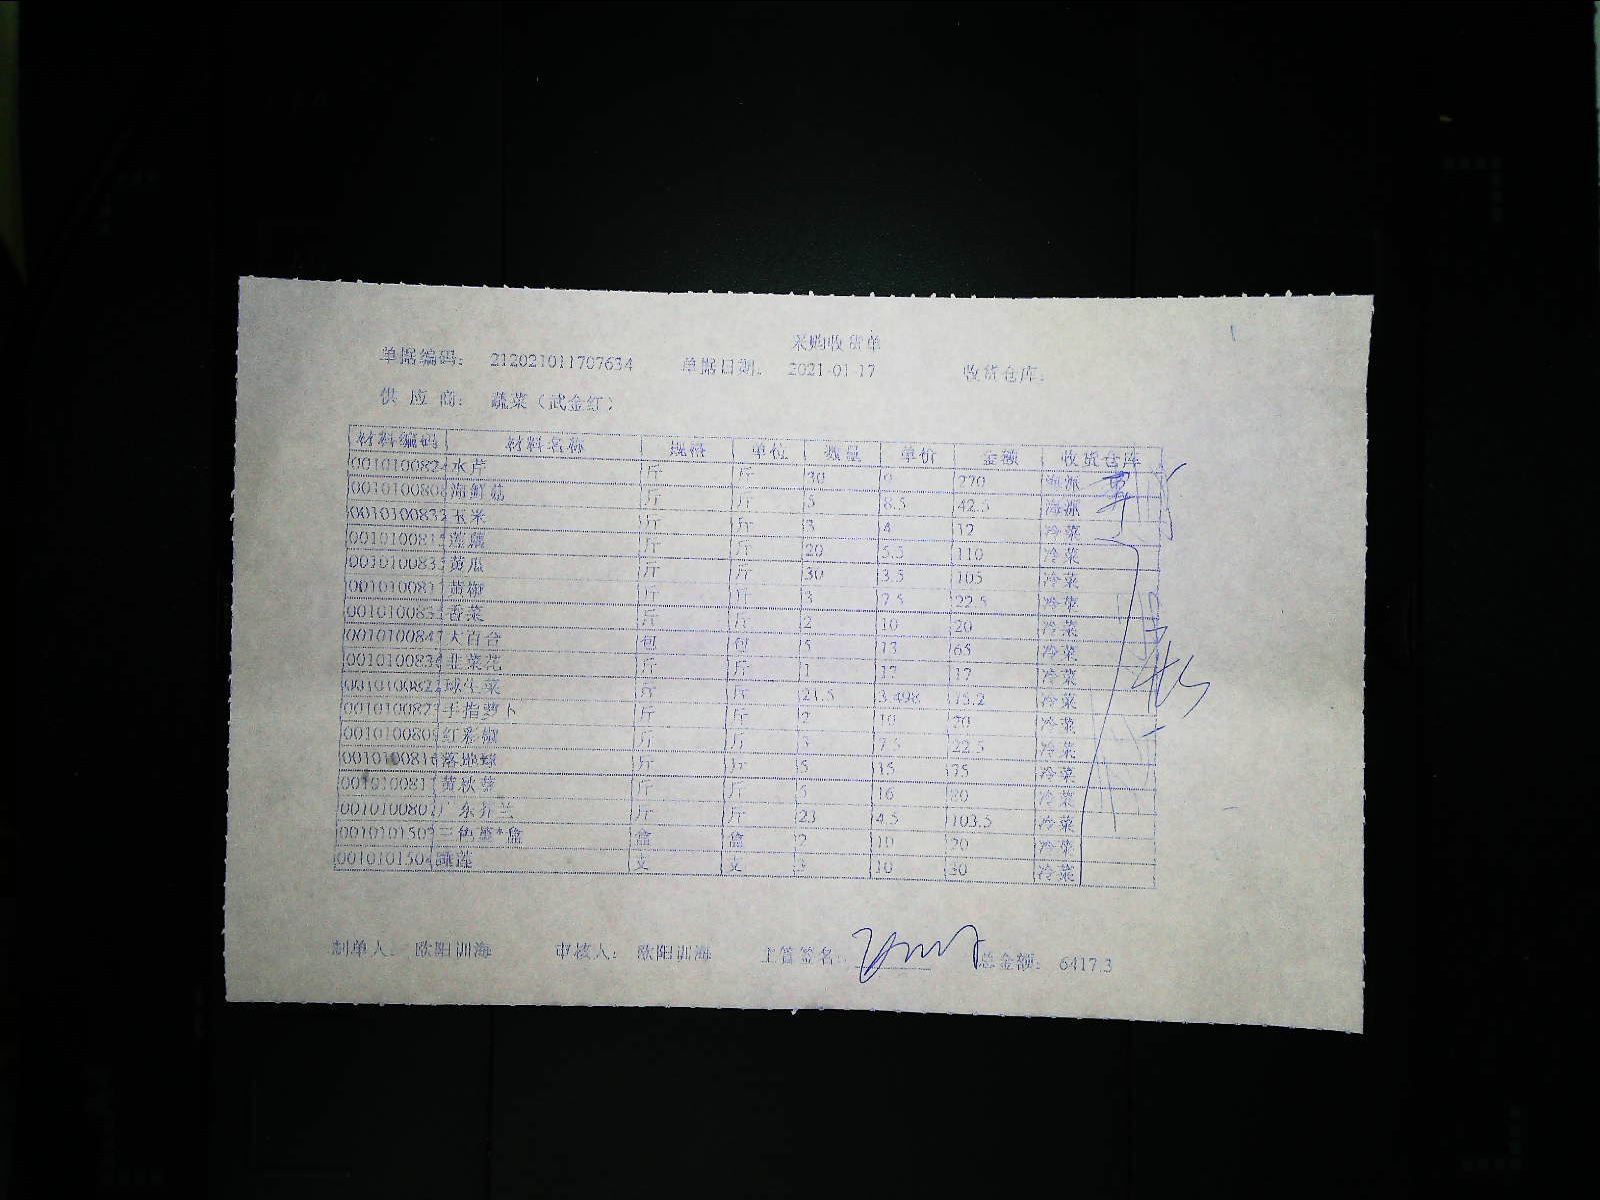 采购收货单
单据编码: 212021011707634 单据日期: 2021-01-17 收货仓库:
供 应 商: 蔬菜（武金红）
材料编码 材料名称 规格 单位 数量 单价 金额 收货仓库
001010082 水芹 斤 斤 30 9 270 海派
001010080 海鲜菇 斤 斤 5 8.5 42.5 海派
001010083 玉米 斤 斤 3 4 12 冷菜
001010081 斤 斤 20 5.5 110 冷菜
001010083 黄瓜 斤 斤 30 3.5 105 冷菜
001010081 黄椒 斤 斤 3 7.5 22.5 冷菜
001010083 香菜 斤 斤 2 10 20 冷菜
001010084 大百合 包 包 5 13 65 冷菜
001010083 韭菜花 斤 斤 1 17 17 冷菜
001010082 球生菜 斤 斤 21.5 3.498 75.2 冷菜
001010082 手指萝卜 斤 斤 2 10 20 冷菜
001010080 红彩椒 斤 斤 3 7.5 22.5 冷菜
001010081 落地球 斤 斤 5 15 75 冷菜
001010081 黄秋葵 斤 斤 5 16 80 冷菜
001010080 广东芥兰 斤 斤 23 4.5 103.5 冷菜
001010150 三色堇*盒 盒 盒 2 10 20 冷菜
001010150 睡莲 支 支 3 10 30 冷菜
制单人: 欧阳训海 审核人: 欧阳训海 主管签名: 总金额: 6417.3